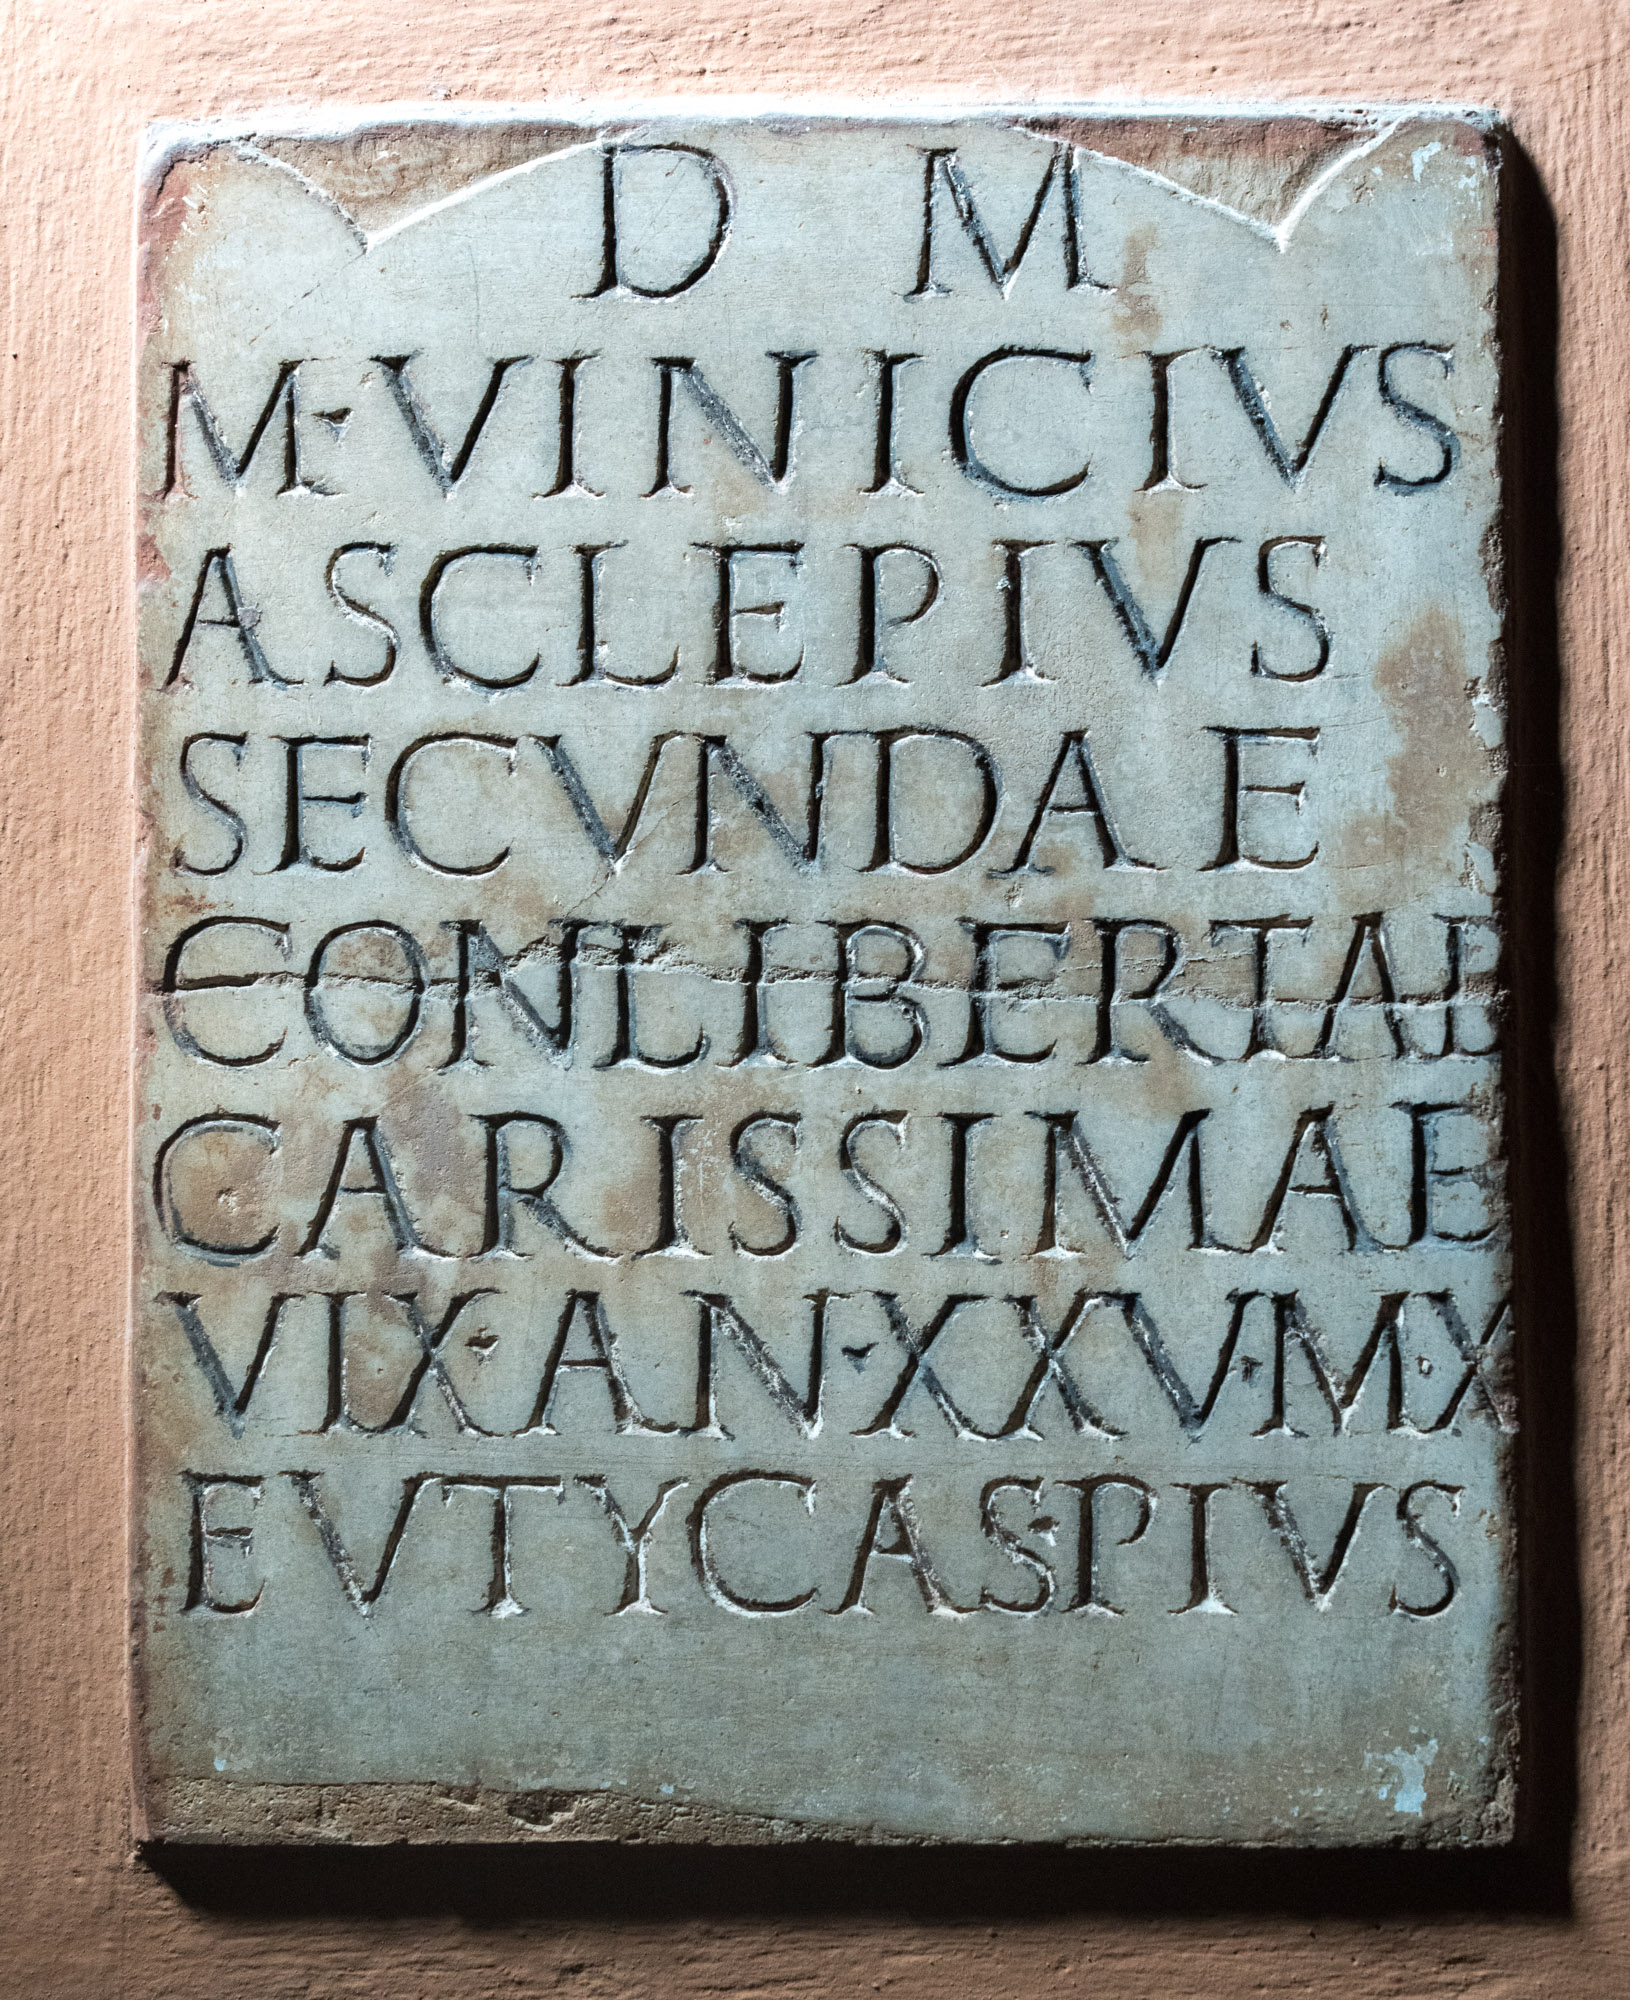 D M
M·VINICIVS
ASCLEPIVS
SECVNDAE
CONLIBERTAE
CARISSIMAE
VIX·AN·XXV·M·X
EVTYCAS·PIVS